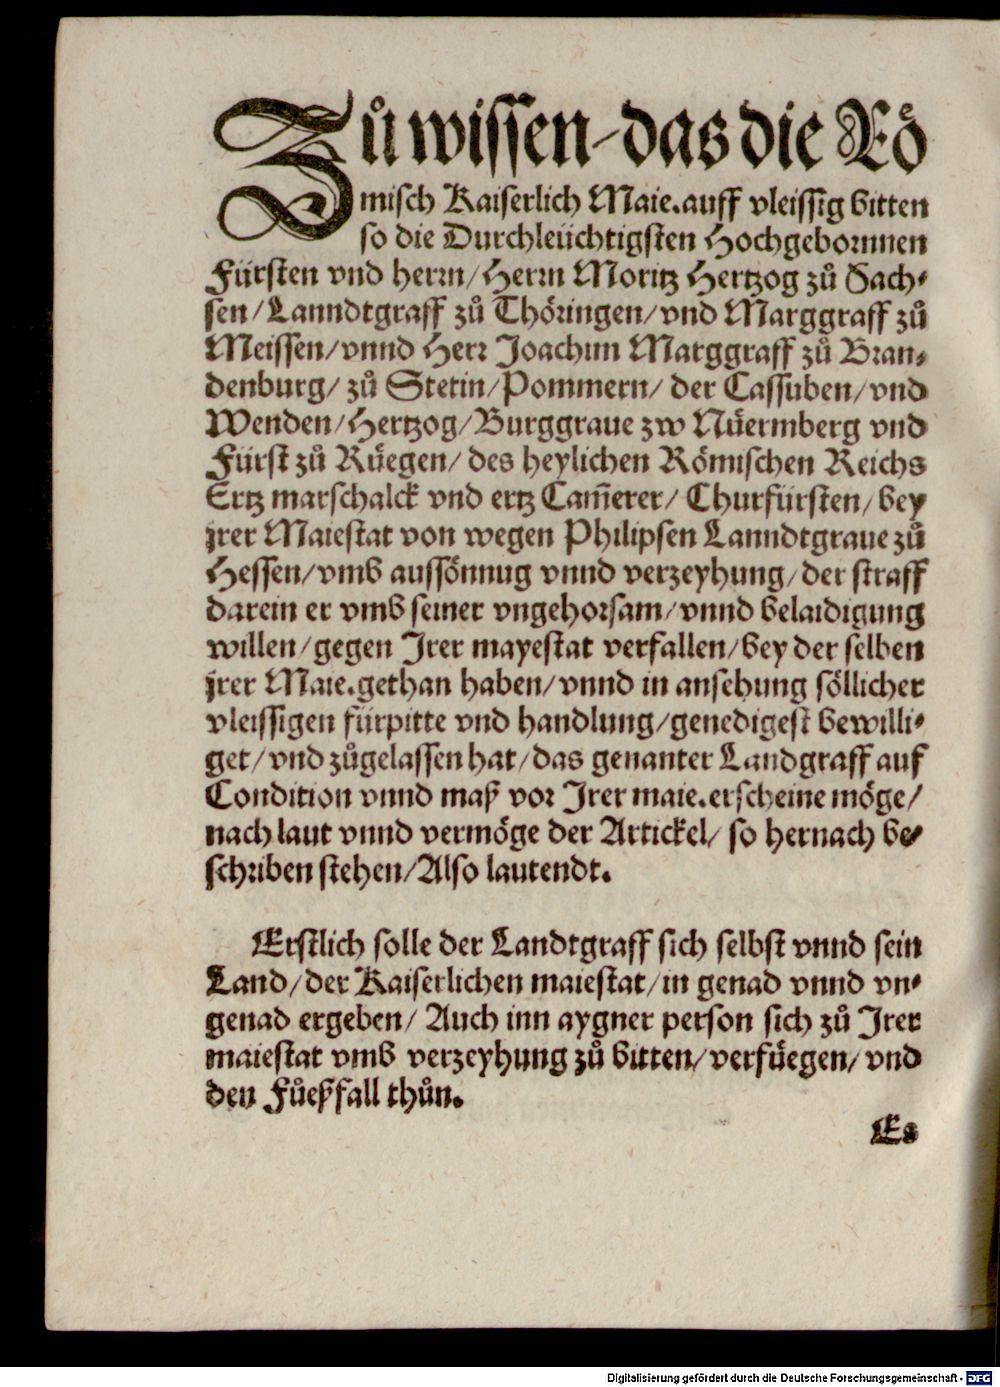 Zů wissen/das die Rö
misch Kaiserlich Maie.auff vleissig bitten
so die Durchleüchtigsten Hochgebornnen
Fürsten vnd herrn/Herrn Moritz Hertzog zů Sach-
sen/Lanndtgraff zů Thöringen/vnd Marggraff zů
Meissen/vnnd Herr Joachim Marggraff zů Bran-
denburg/zů Stetin/Pommern/der Cassuben/vnd
Wenden/Hertzog/Burggraue zw Nüermberg vnd
Fürst zů Rüegen/des heylichen Römischen Reichs
Ertz marschalck vnd ertz Cam̃erer/Churfürsten/bey
jrer Maiestat von wegen Philipsen Lanndtgraue zů
Hessen/vmb aussönnug vnnd verzeyhung/der straff
darein er vmb seiner vngehorsam/vnnd belaidigung
willen/gegen Irer mayestat verfallen/bey der selben
jrer Maie.gethan haben/vnnd in ansehung söllicher
vleissigen fürpitte vnd handlung/genedigest bewilli-
get/vnd zůgelassen hat/das genanter Landgraff auf
Condition vnnd maß vor Irer maie.erscheine möge/
nach laut vnnd vermöge der Artickel/so hernach be-
schriben stehen/Also lautendt.
Erstlich solle der Landtgraff sich selbst vnnd sein
Land/der Kaiserlichen maiestat/in genad vnnd vn-
genad ergeben/Auch inn aygner person sich zů Irer
maiestat vmb verzeyhung zů bitten/verfüegen/vnd
den Fůeßfall thůn.
Es
Digitalisierung gefördert durch die Deutsche Forschungsgemeinschaft - DFG